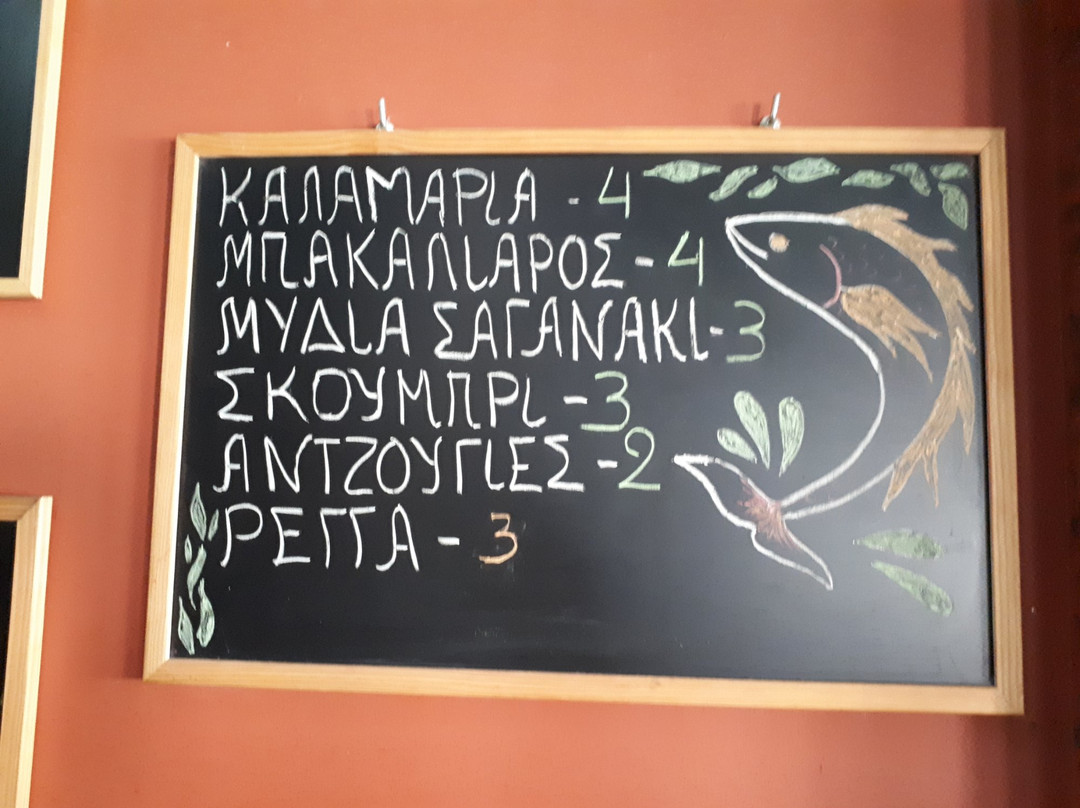 ΚΑΛΑΜΑΡΙΑ - 4
ΜΠΑΚΑΛΙΑΡΟΣ - 4
ΜΥΔΙΑ ΣΑΓΑΝΑΚΙ - 3
ΣΚΟΥΜΠΡΙ - 3
ΑΝΤΖΟΥΓΙΕΣ - 2
ΡΕΓΓΑ - 3